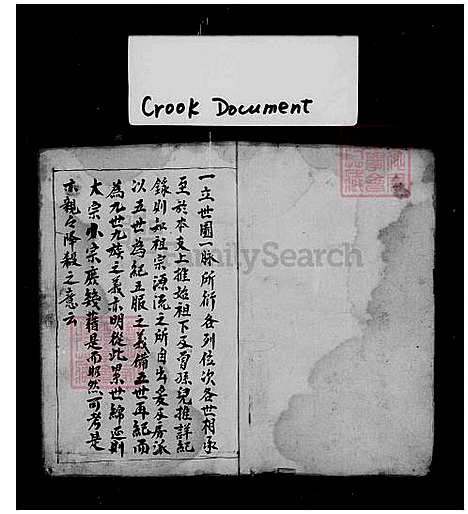 Crook Document
一立世圖一脉所衍各列位次各世相承
至於本支上推始祖下及曾孫兒推詳紀
錄則知祖宗源流之所自出支分房派
以五世為紀五服之義備五世再紀而
為九世九族之義亦明從此累世綿延則
大宗小宗庶幾藉是而昭然可考是
亦親親降殺之意云
FamilySearch